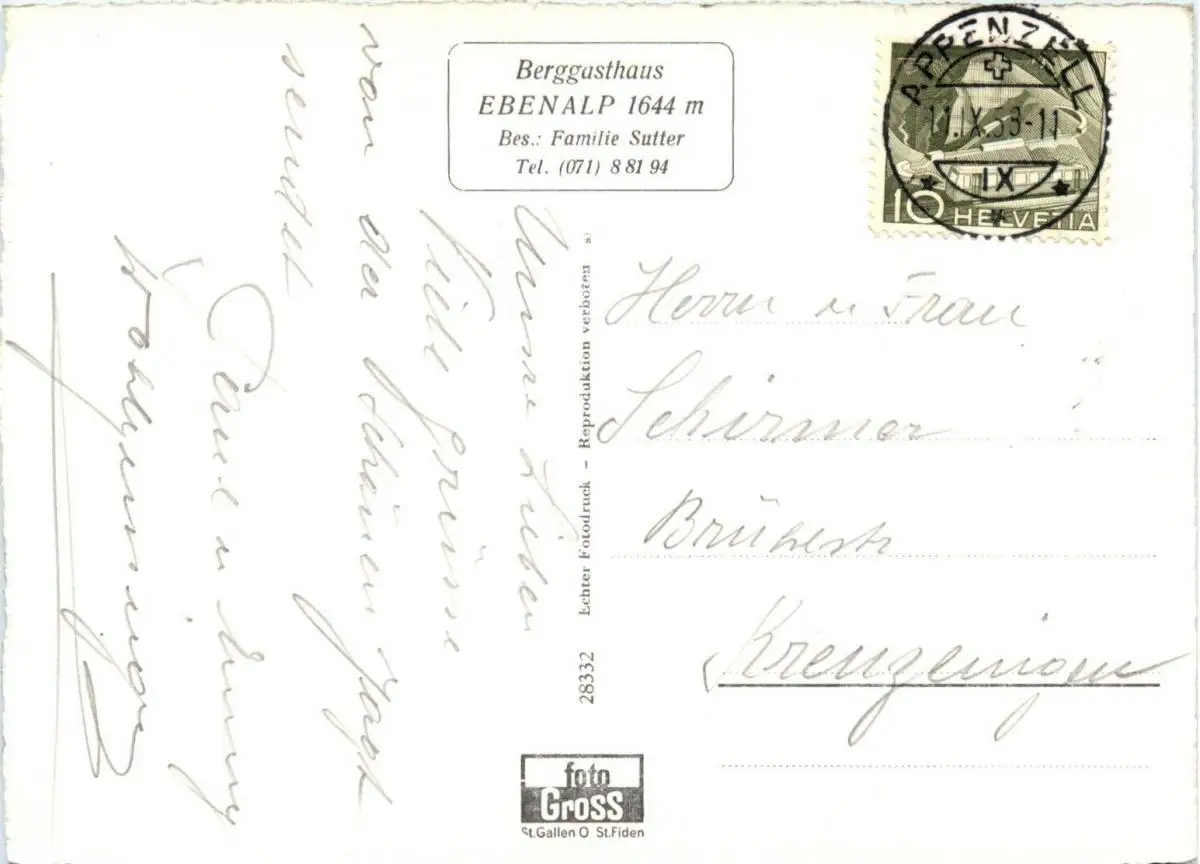 Berggasthaus
EBENALP 1644 m
Bes.: Familie Sutter
Tel. (071) 8 81 94
APPENZELL
11.IX.53-11
IX
10 HELVETIA
Unsere Lieben
Viele Grüsse
von der schönen
sendet
Paul u Emmy
Herrn u Frau
Schirmer
Kreuzlingen
28332 Echter Fotodruck – Reproduktion verboten
foto
Gross
St.Gallen O St.Fiden